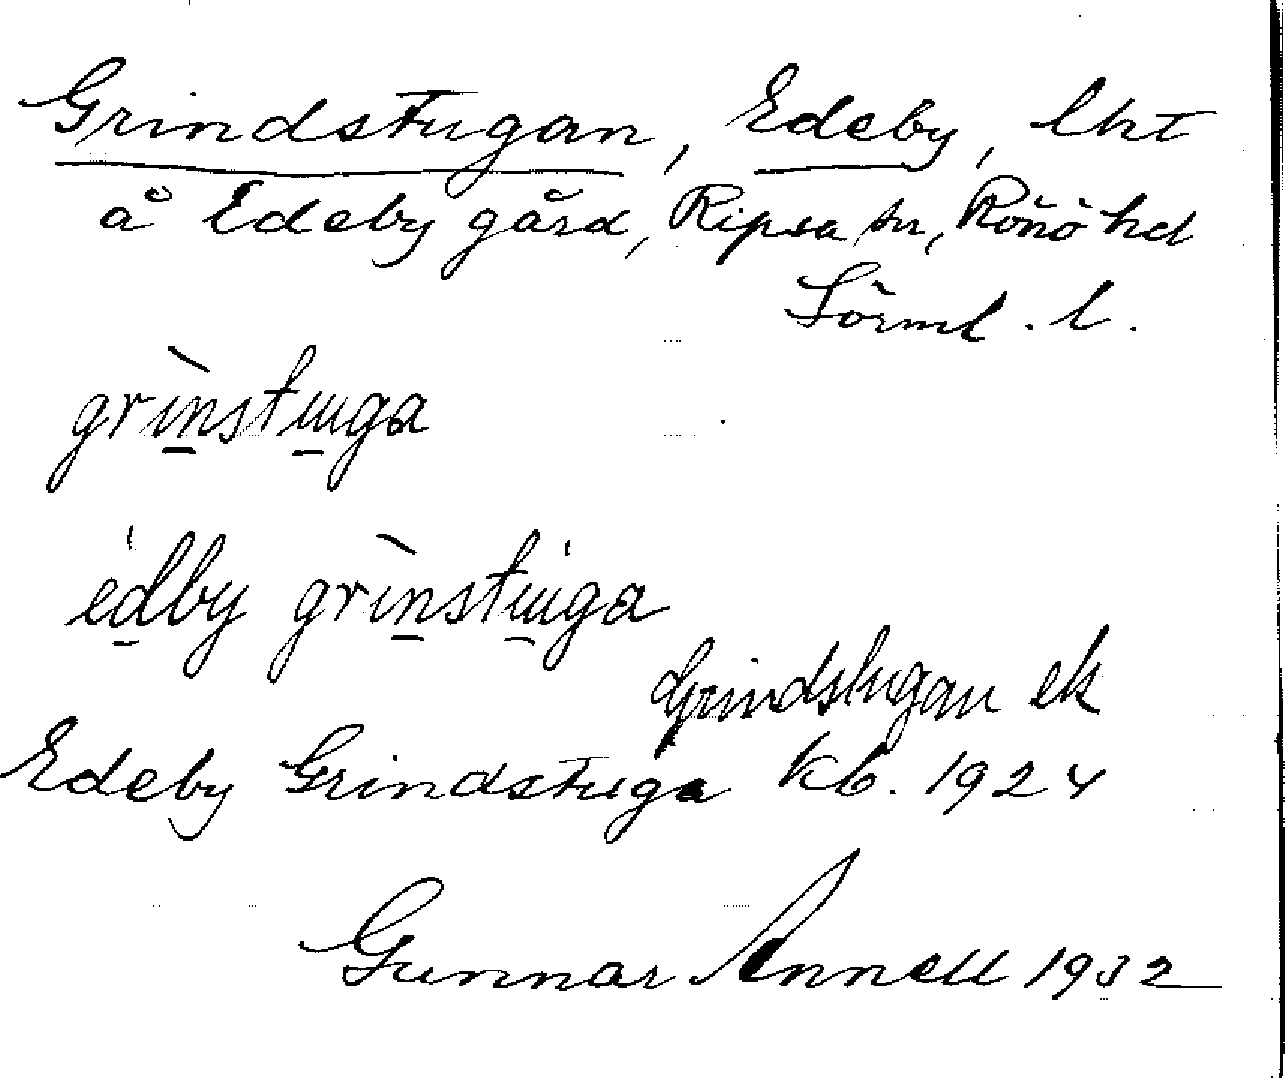 Grindstugan, Edeby, lht
å Edeby gård, Ripsa sn, Rönö hd
Sörml. l.
grìnstuga
édby grìnstuga
Grindstugan ek
Edeby Grindstuga kb. 1924
Gunnar Annell 1932